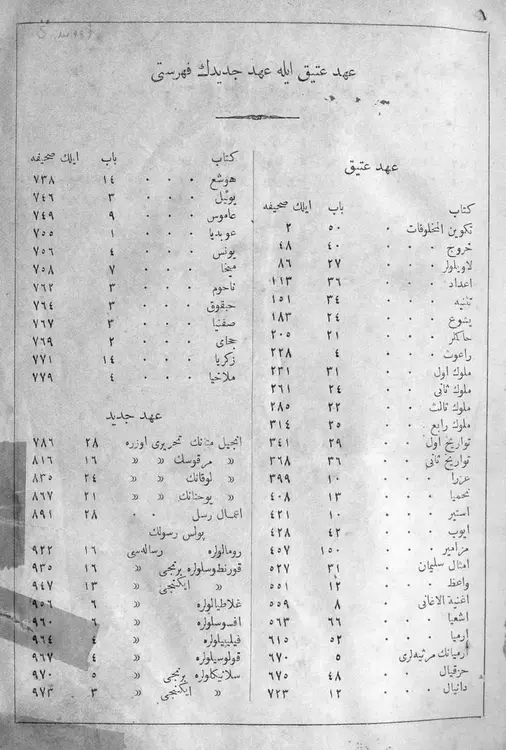 عهد عتیق ایله عهد جدیدك فهرستی
عهد عتیق
کتاب باب ایلك صحیفه
تکوین المخلوقات ٥٠ ٢
خروج ٤٠ ٤٨
لاویلولر ٢٧ ٨٦
اعداد ٣٦ ١١٣
تثنیه ٣٤ ١٥١
یشوع ٢٤ ١٨٣
حاکملر ٢١ ٢٠٥
راعوت ٤ ٢٢٨
ملوك اول ٣١ ٢٣١
ملوك ثانی ٢٤ ٢٦١
ملوك ثالث ٢٢ ٢٨٥
ملوك رابع ٢٥ ٣١٤
تواریخ اول ٢٩ ٣٤١
تواریخ ثانی ٣٦ ٣٦٨
عزرا ١٠ ٣٩٩
نحمیا ١٣ ٤٠٨
استیر ١٠ ٤٢١
ایوب ٤٢ ٤٢٨
مزامیر ١٥٠ ٤٥٧
امثال سلیمان ٣١ ٥٢٧
واعظ ١٢ ٥٥١
اغنیة الاغانی ٨ ٥٥٩
اشعیا ٦٦ ٥٦٣
ارمیا ٥٢ ٦١٥
ارمیانك مرثیه‌لری ٥ ٦٧٠
حزقیال ٤٨ ٦٧٥
دانیال ١٢ ٧٢٣
کتاب باب ایلك صحیفه
هوشع ١٤ ٧٣٨
یوئیل ٣ ٧٤٦
عاموس ٩ ٧٤٩
عوبدیا ١ ٧٥٥
یونس ٤ ٧٥٦
میخا ٧ ٧٥٨
ناحوم ٣ ٧٦٢
حبقوق ٣ ٧٦٤
صفنیا ٣ ٧٦٧
حجای ٢ ٧٦٩
زکریا ١٤ ٧٧١
ملاخیا ٤ ٧٧٩
عهد جدید
انجیل متانك تحریری اوزره ٢٨ ٧٨٦
« مرقوسك « « ١٦ ٨١٦
« لوقانك « « ٢٤ ٨٣٥
« یوحنانك « « ٢١ ٨٦٧
اعمال رسل ٢٨ ٨٩١
پولس رسولك
رومالولره رساله‌سی ١٦ ٩٢٢
قورنطوسلولره برنجی « ١٦ ٩٣٥
« ایکنجی « ١٣ ٩٤٧
غلاطیالولره « ٦ ٩٥٦
افسوسلولره « ٦ ٩٦٠
فیلیپیلولره « ٤ ٩٦٤
قولوسیلولره « ٤ ٩٦٧
سلانیکلولره برنجی « ٥ ٩٧٠
« ایکنجی « ٣ ٩٧٣